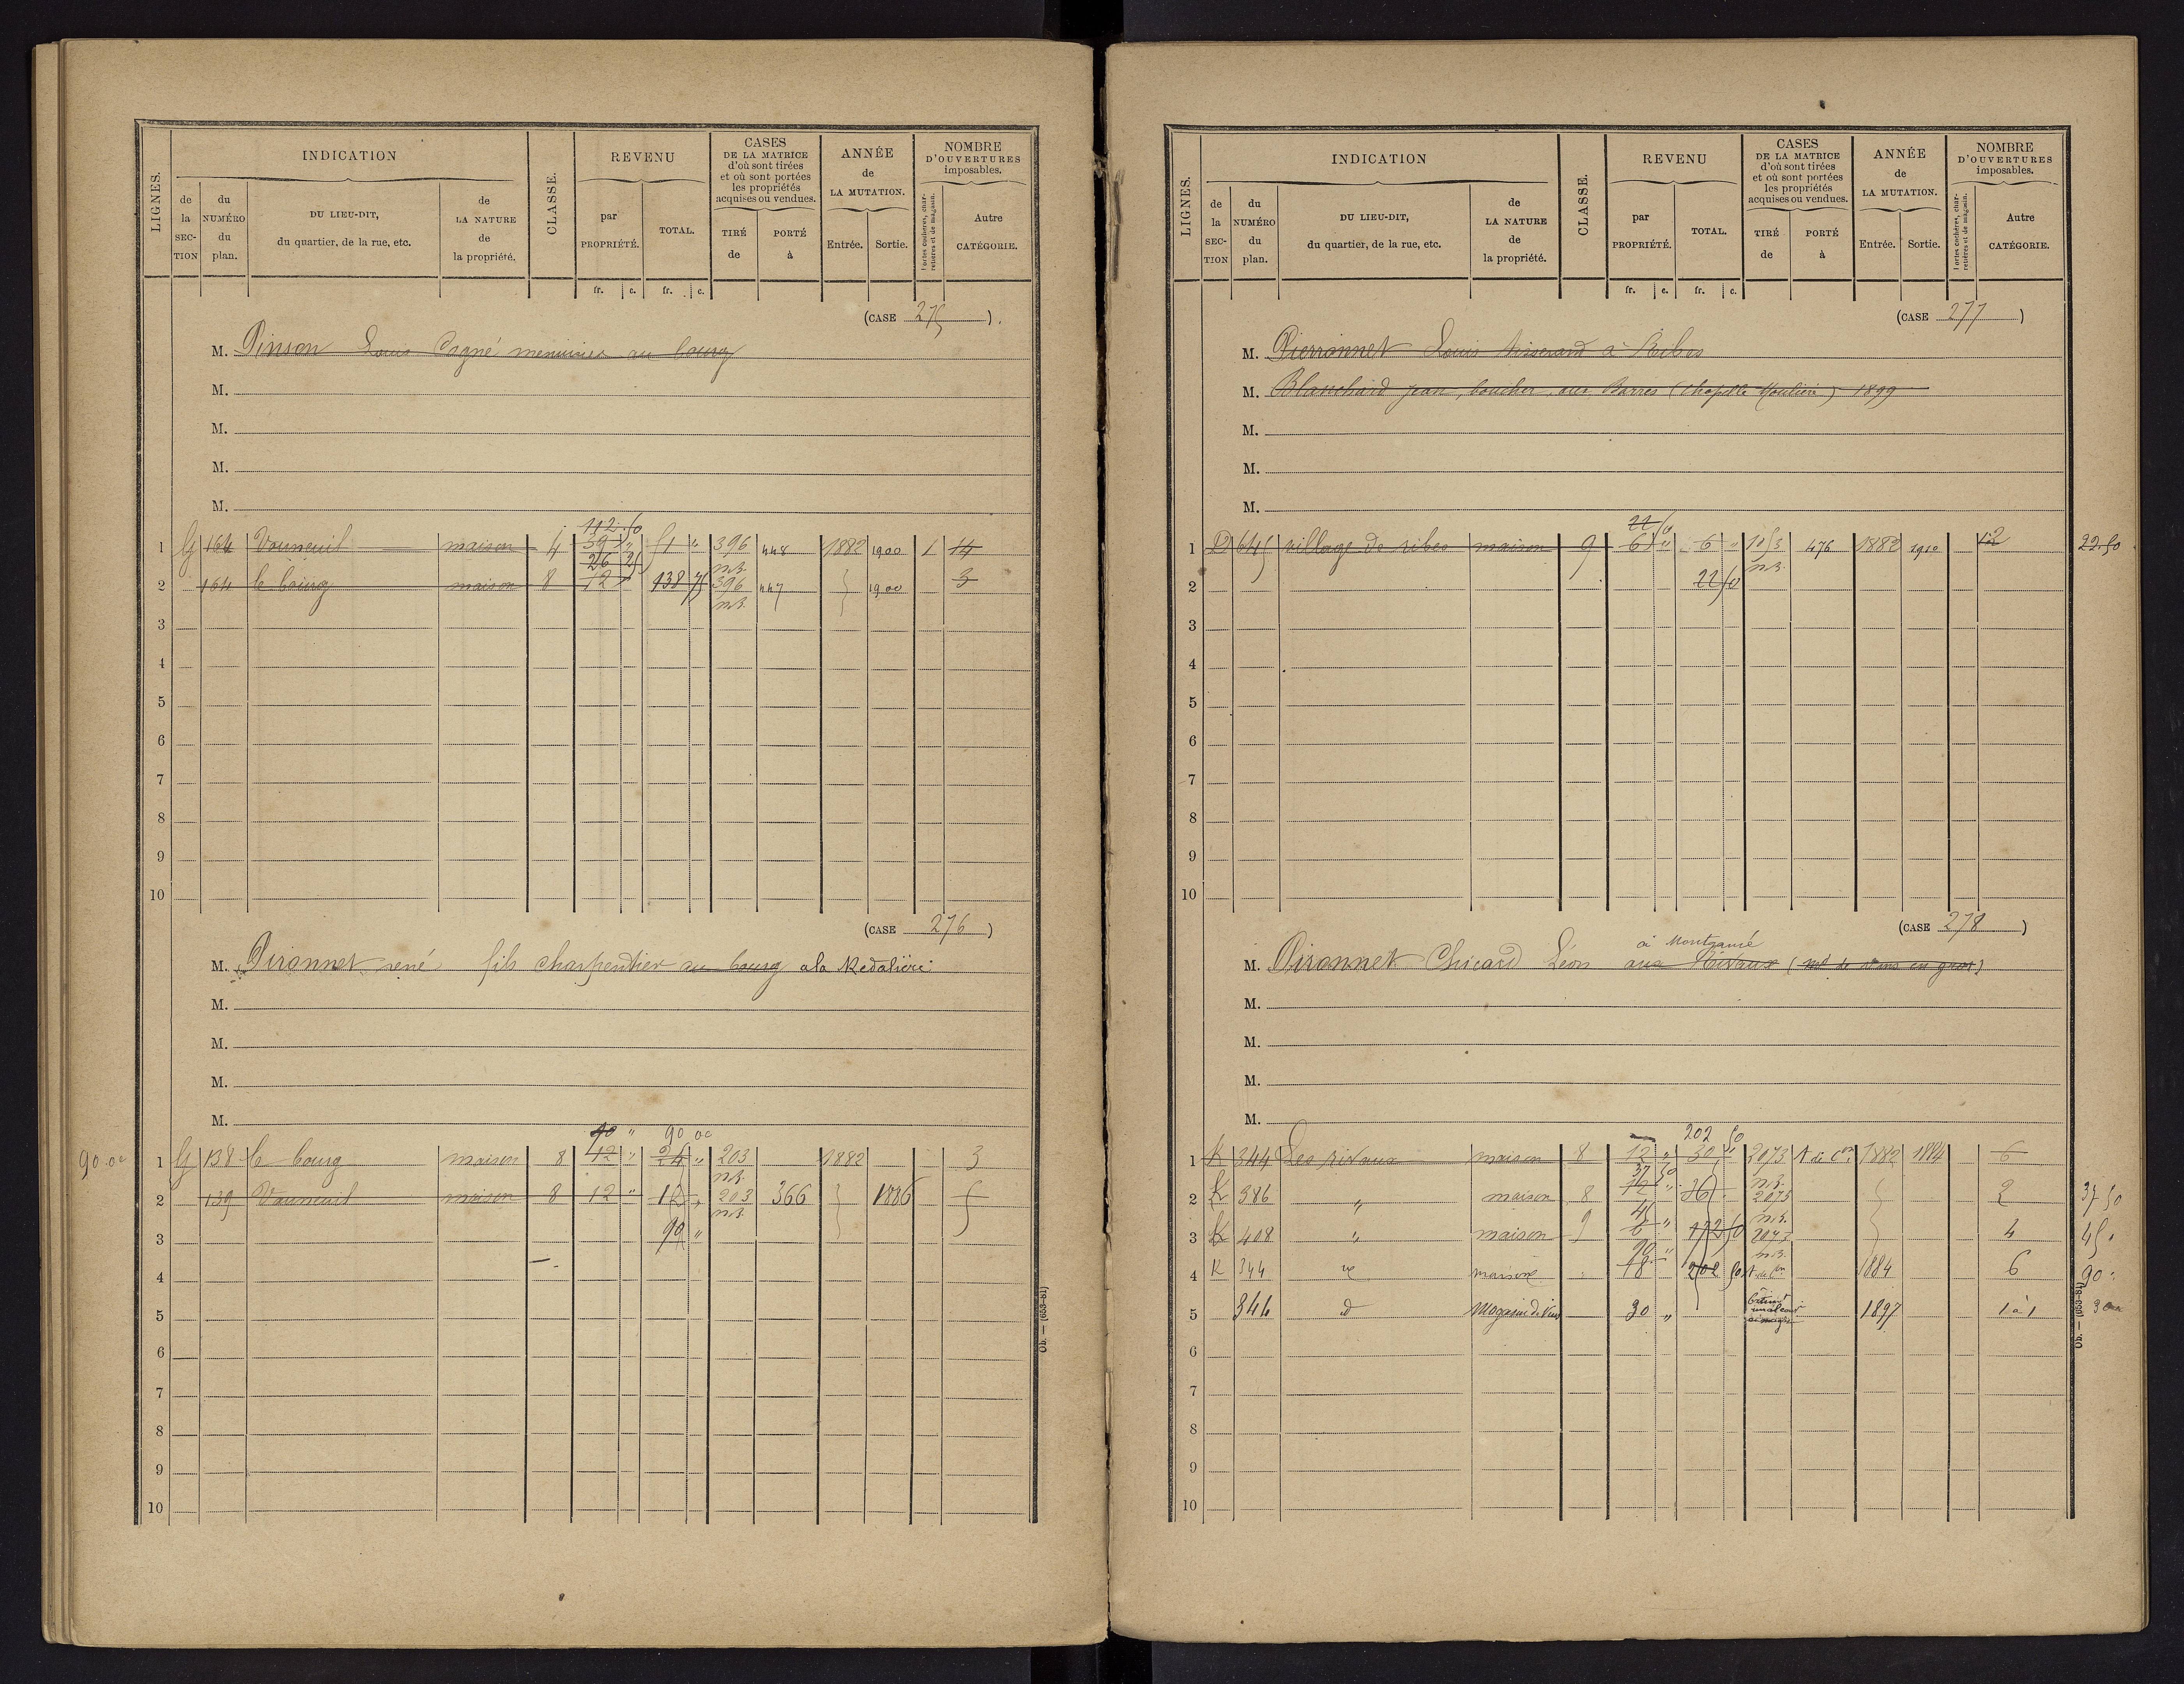 LIGNES.
INDICATION
de la SECTION
du NUMÉRO du plan.
DU LIEU-DIT, du quartier, de la rue, etc.
de LA NATURE de la propriété.
CLASSE.
REVENU
par PROPRIÉTÉ.
TOTAL.
fr. c. fr. c.
CASES DE LA MATRICE d'où sont tirées et où sont portées les propriétés acquises ou vendues.
TIRÉ de
PORTÉ à
ANNÉE de LA MUTATION.
Entrée. Sortie.
NOMBRE D'OUVERTURES imposables.
Portes cochères, charretières et de magasin.
Autre CATÉGORIE.
(CASE 275).
M. Pinson Louis Cagné menuisier au bourg
M.
M.
M.
M.
112 50
1 G 164 Vouneuil maison 4 39 " 51 " 396 448 1882 1900 1 14
26 25 n.B.
2 164 le bourg maison 8 12 " 138 75 396 447 1900 3
n.B.
3
4
5
6
7
8
9
10
(CASE 276)
M. Pironnet rené fils charpentier au bourg a la Kedalière
M.
M.
M.
M.
90 " 90 00
90.00 1 G 138 le bourg maison 8 12 " 24 " 203 1882 3
n.B.
2 139 Vouneuil maison 8 12 " 12 " 203 366 1886 5
n.B.
3 90 "
4
5
6
7
8
9
10
Ob. — (653-81)
LIGNES.
INDICATION
de la SECTION
du NUMÉRO du plan.
DU LIEU-DIT, du quartier, de la rue, etc.
de LA NATURE de la propriété.
CLASSE.
REVENU
par PROPRIÉTÉ.
TOTAL.
fr. c. fr. c.
CASES DE LA MATRICE d'où sont tirées et où sont portées les propriétés acquises ou vendues.
TIRÉ de
PORTÉ à
ANNÉE de LA MUTATION.
Entrée. Sortie.
NOMBRE D'OUVERTURES imposables.
Portes cochères, charretières et de magasin.
Autre CATÉGORIE.
(CASE 277)
M. Pierronnet Louis tisserand à Ribes
M. Blanchard jean, boucher aux Barres (Chapelle Moulière) 1899
M.
M.
M.
22 50
1 D 645 village de ribes maison 9 6 " 6 " 1053 476 1882 1910 2 22.50
n.B.
2 22 50
3
4
5
6
7
8
9
10
(CASE 278)
à Montgamé
M. Pironnet Chicard Léon aux Rivaux (md de vins en gros)
M.
M.
M.
M.
202 50
1 K 344 Les rivaux maison 8 12 " 30 " 2073 1882 1884 6
37 50 n.B.
2 K 386 " maison 8 12 " 36 2073 2 37 50
45 n.B.
3 K 408 " maison 9 6 " 172 50 2073 4 45 "
90 " n.B.
4 K 344 maison 18 202 50 1884 6 90 "
5 344 d Magasin de vins 30 " 1897 1 à 1 30
6
7
8
9
10
Ob. — (653-81)